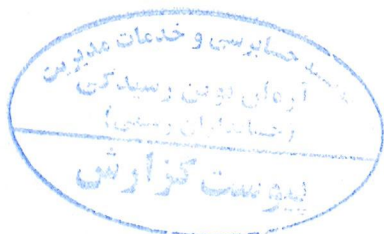 موسسه حسابرسی و خدمات مدیریت
آرمان نوین رسیدگی
(حسابداران رسمی)
پیوست گزارش